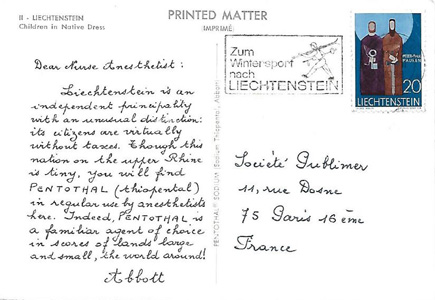 II - LIECHTENSTEIN
Children in Native Dress
PRINTED MATTER
IMPRIMÉ:
Dear Nurse Anesthetist:
Liechtenstein is an
independent principality
with an unusual distinction:
its citizens are virtually
without taxes. Though this
nation on the upper Rhine
is tiny, you will find
PENTOTHAL (thiopental)
in regular use by anesthetists
here. Indeed, PENTOTHAL is
a familiar agent of choice
in scores of lands large
and small, the world around!
Abbott
PENTOTHAL® SODIUM (Sodium Thiopental, Abbott)
Zum
Wintersport
nach
LIECHTENSTEIN
PETER+PAUL
20
LIECHTENSTEIN
Société Publimer
11, rue Dosne
75 Paris 16ème
France